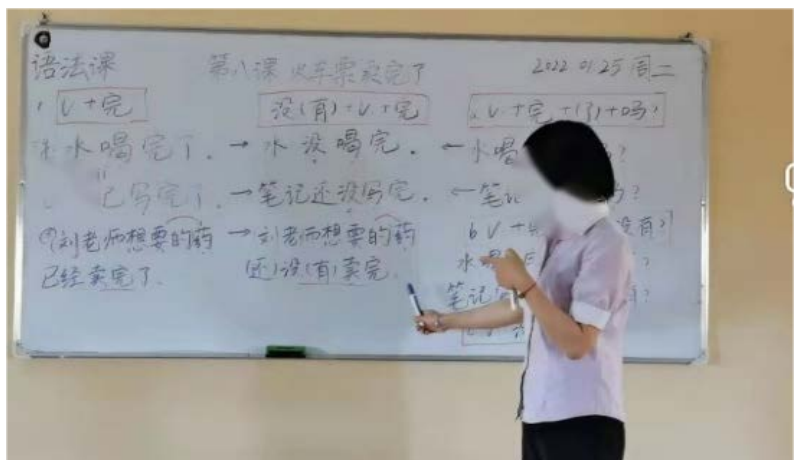 语法课 第八课 火车票卖完了 2022 01.25 周二
1 V+完 没(有)+V+完 a V+完+(了)+吗?
水喝完了. → 水没喝完. ← 水喝 ?
已写完了. → 笔记还没写完. ← 笔记 吗?
刘老师想要的药 → 刘老师想要的药 b V+ 没有?
已经卖完了. (还)没(有)卖完. 水喝 ?
笔记 ?